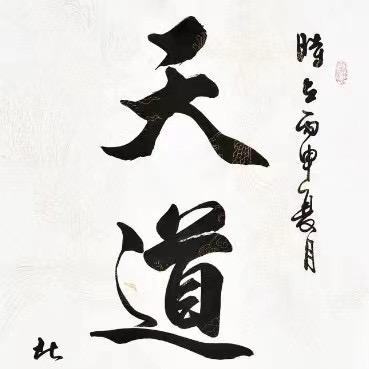 時在丙申夏月
天道
北